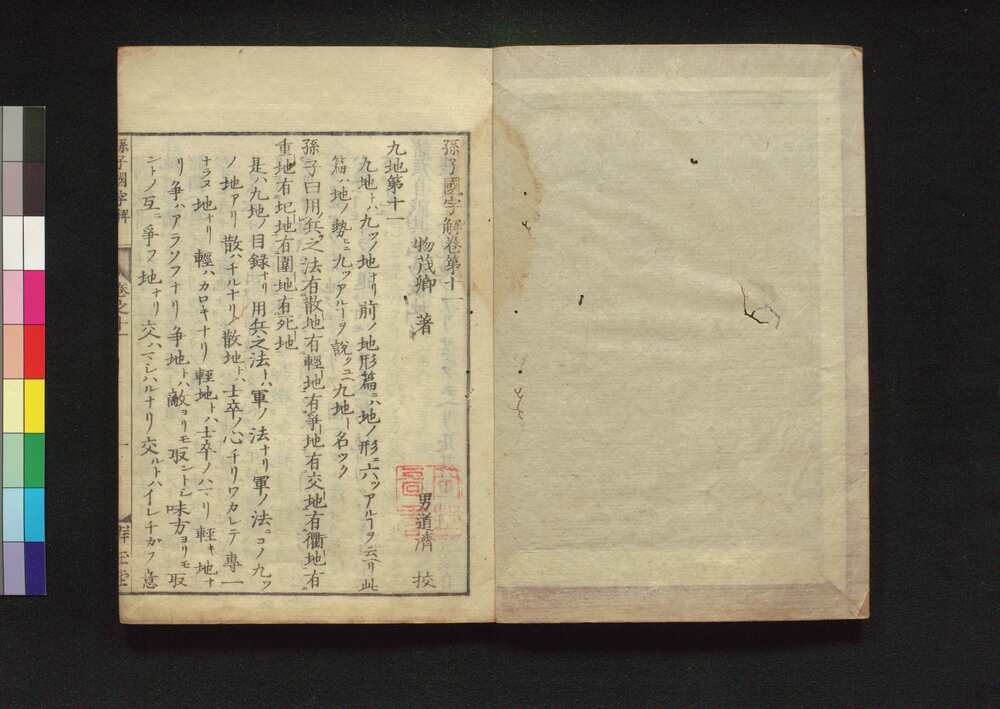 孫子國字解卷第十一
物茂卿 著
男道濟 校
九地第十一
九地トハ九ツノ地ナリ前ノ地形篇ニハ地ノ形ニ六ツアルヿヲ云ヘリ此
篇ハ地ノ勢ニ九ツアルヿヲ說クユヘ九地ト名ツク
孫子曰用兵之法有散地有輕地有爭地有交地有衢地有
重地有圮地有圍地有死地
是ハ九地ノ目録ナリ用兵之法トハ軍ノ法ナリ軍ノ法ニコノ九ツ
ノ地アリ散ハチルナリ散地トハ士卒ノ心チリワカレテ專一
ナラヌ地ナリ輕ハカロキナリ輕地トハ士卒ノハマリ輕キ地ナ
リ爭ハアラソフナリ爭地トハ敵ヨリモ取ントシ味方ヨリモ取
ントノ互ニ爭フ地ナリ交ハマシハルナリ交ルトハイレチカフ意
孫子國字解
卷之十一
一